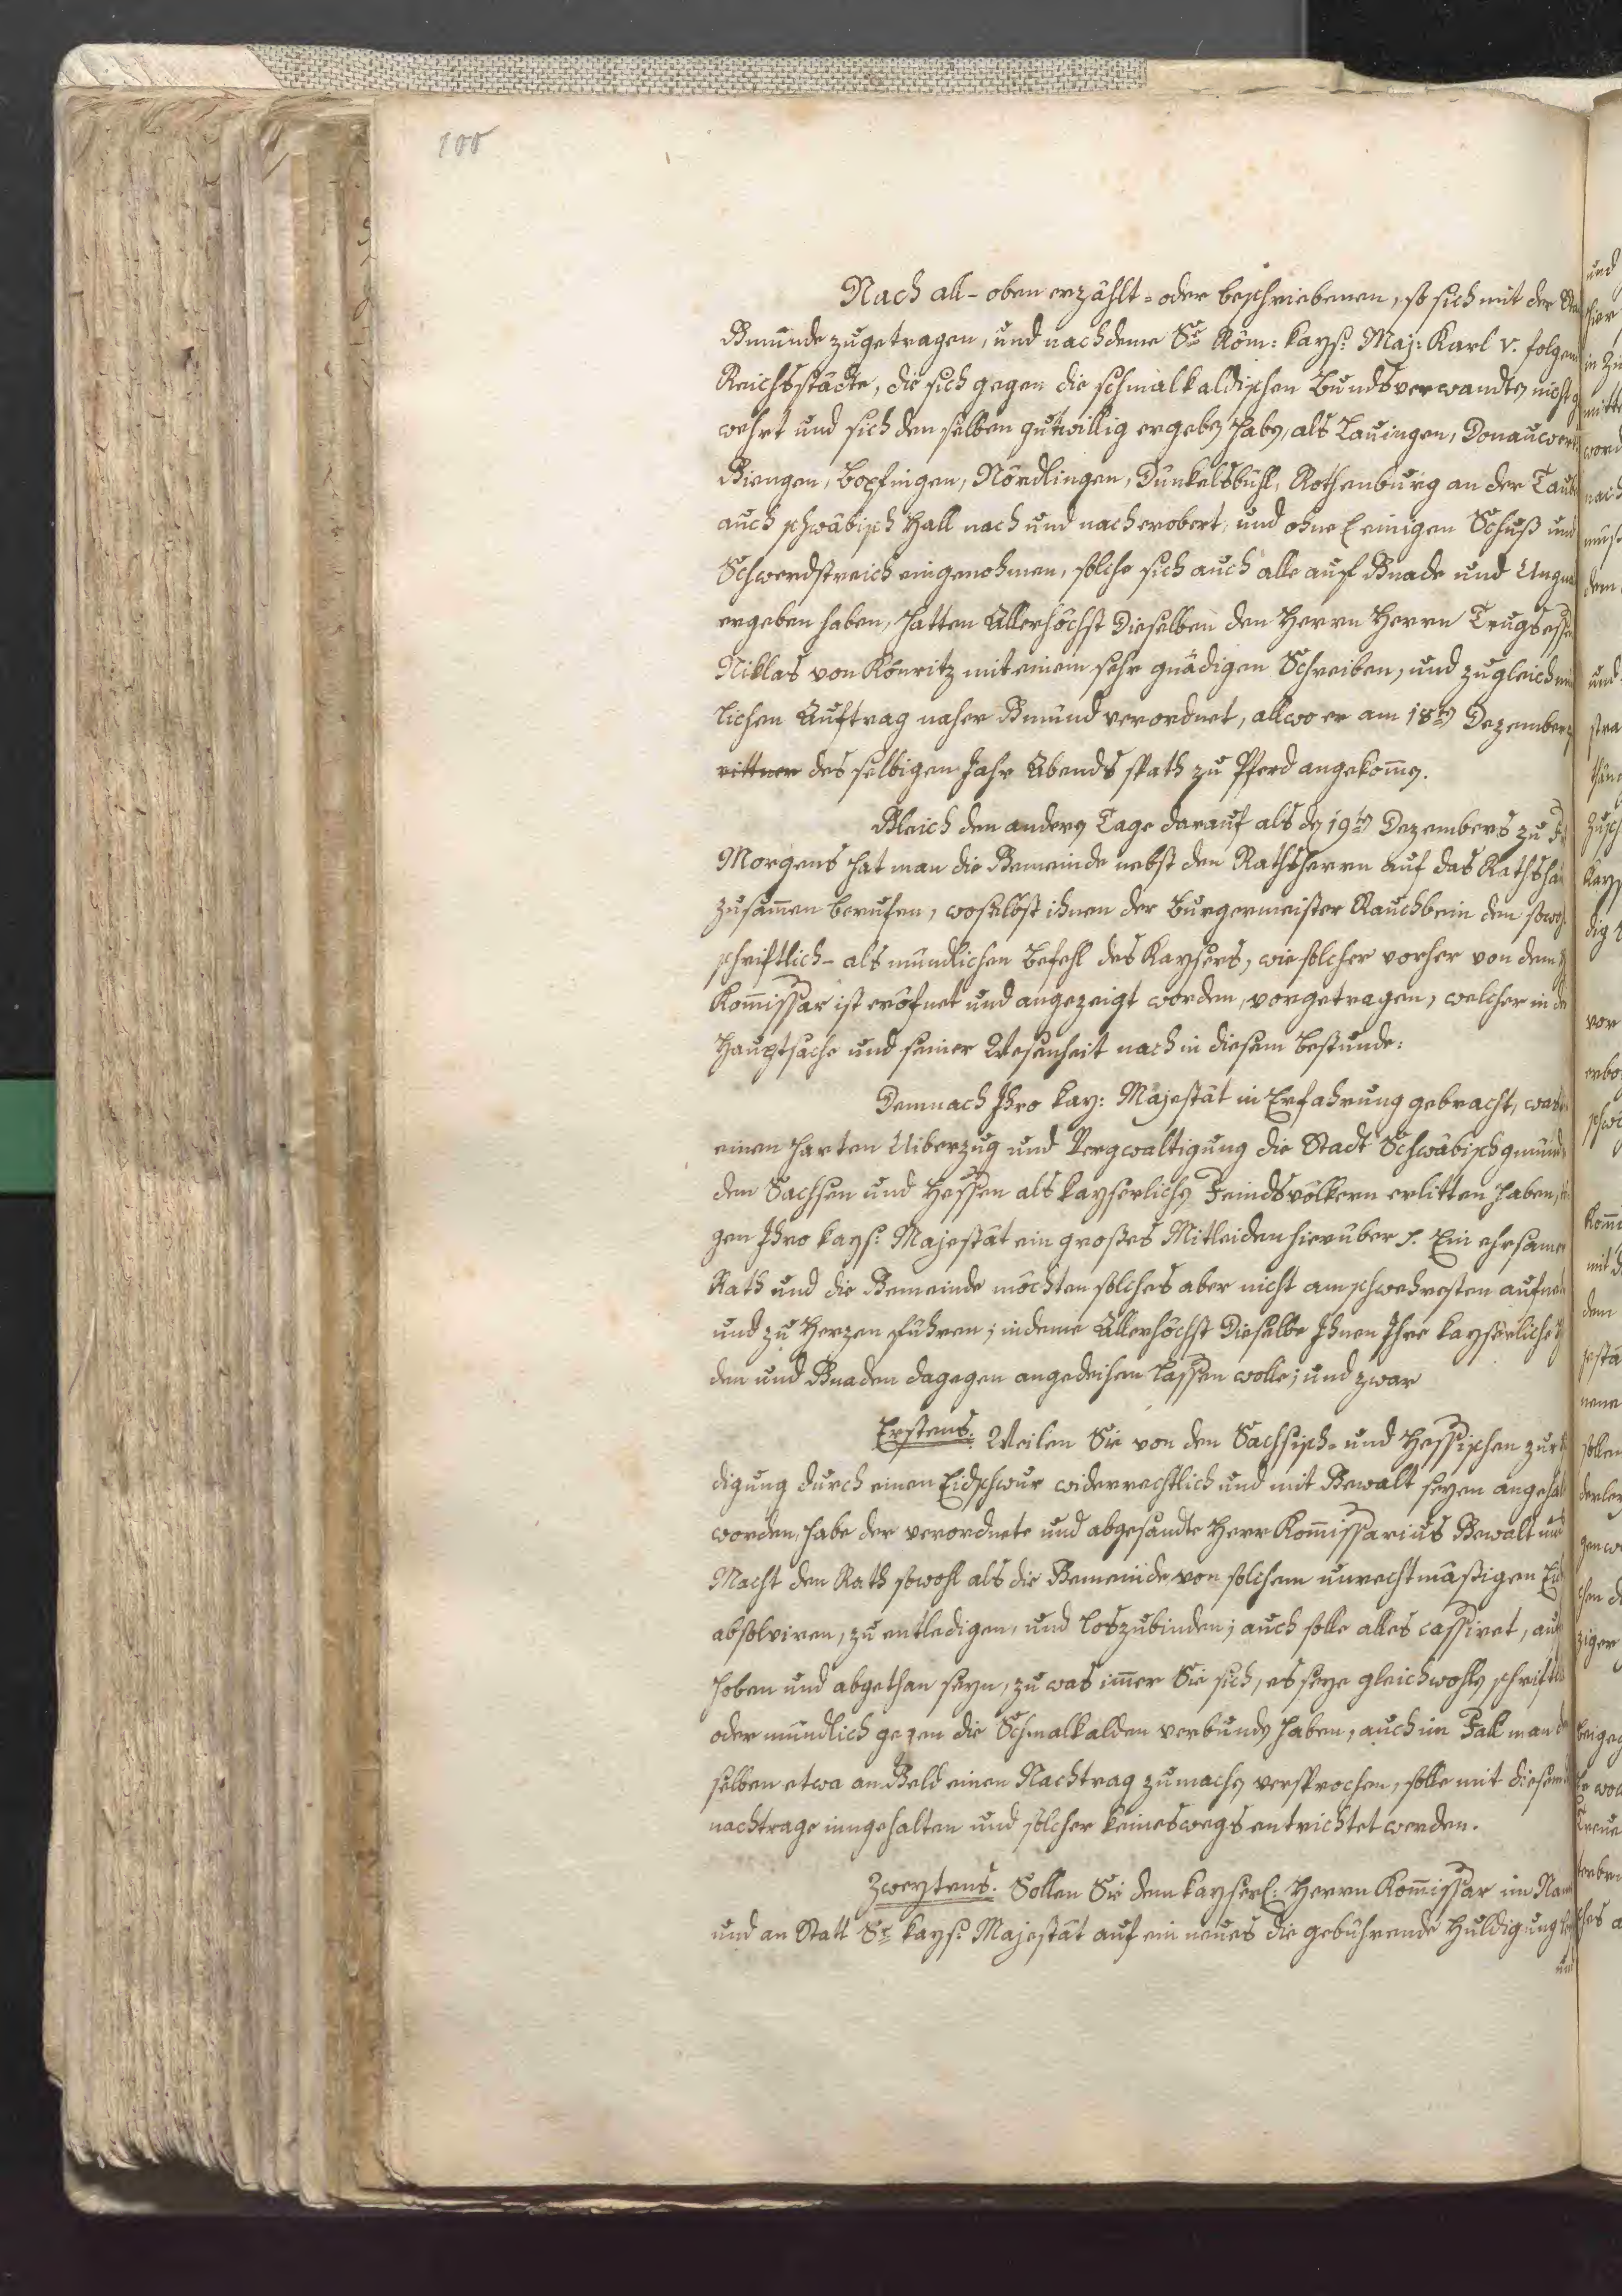 100
Nach all- oben erzählt- oder beschriebenen, so sich mit der Sta
Gmünde zugetragen, und nachdeme Se Röm: kays: Maj: Karl V. folgen
Reichsstädte, die sich gegen die schmalkaldischen Bundsverwandten nicht g
wehrt und sich denselben gutwillig ergeben haben, als Lauingen, Donauwert
Giengen, Bopfingen, Nördlingen, Dünkelsbühl, Rothenburg an der Taub
auch schwäbisch Hall nach und nach erobert, und ohne einigen Schuß und
Schwerdstreich eingenohmen, solche sich auch alle auf Gnade und Ungna
ergeben haben, hatten Allerhöchst Dieselben den Herrn Herrn Trugsesse
Niklas von Könritz mit einem sehr gnädigen Schreiben, und zugleich mü
lichen Auftrag naher Gmünd verordnet, allwo er am 18ten Dezember
rittner desselbigen Jahr Abends spath zu Pferd angekommen.
Gleich den andern Tage darauf als den 19ten Dezembers zu F
Morgens hat man die Gemeinde nebst den Rathsherrn auf das Rathsha
zusammen berufen, woselbst ihnen der Burgermeister Rauchbein den sowo
schriftlich- als mündlichen Befehl des Kaysers, wie solcher vorher von dem H
Kommissar ist eröfnet und angezeigt worden, vorgetragen, welcher in de
Hauptsache und seiner Wesenheit nach in diesem bestunde:
Demnach Ihro kay: Majestät in Erfahrung gebracht, was
einen harten Uiberzug und Vergwaltigung die Stadt Schwäbischgmünd
den Sachsen und Hessen als kayserlichen Feindsvölkern erlitten haben,
gen Ihro kays: Majestät ein großes Mitleiden hierüber s. Ein ehrsamer
Rath und die Gemeinde möchten solches aber nicht am schwehresten aufneh
und zu Herzen führen; indeme Allerhöchst Dieselbe Ihnen Ihre kayserliche H
den und Gnaden dagegen angedeihen lassen wolle; und zwar
Erstens. Weilen Sie von den Sachsisch- und Hessischen zur
digung durch einen Eidschwur widerrechtlich und mit Gewalt seyen angehal
worden, habe der verordnete und abgesandte Herr Kommissarius Gewalt und
Macht den Rath sowohl als die Gemeinde von solchem unrechtmäßigen Eid
absolviren, zu entledigen, und loszubinden; auch solle alles cassiret, auf
hoben und abgethan seyn, zu was immer Sie sich, es seye gleichwohlen schriftli
oder mündlich gegen die Schmalkalden verbunden haben, auch im Fall man de
selben etwa an Geld einen Nachtrag zumachen versprochen, solle mit diesem
nachtrage inngehalten und solcher keineswegs entrichtet werden.
Zweytens. Sollen Sie dem kayserl: Herrn Kommissar im Nam
und an Statt Sr kays: Majestät auf ein neues die gebührende Huldigung
und